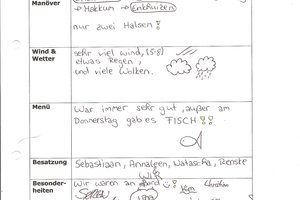 Manöver
→ Makkum → Enkhuizen
nur zwei Halsen!
Wind & Wetter
sehr viel wind, (5-8)
etwas Regen,
und viele Wolken.
Menü
War immer sehr gut, außer am
Donnerstag gab es FISCH!
Besatzung
Sebastiaan, Annaleen, Natascha, Renske
Besonder-
heiten
Wir waren an Bord!